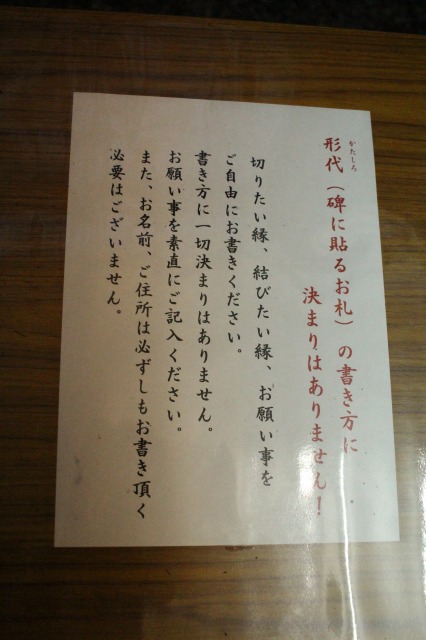 かたしろ
形代（碑に貼るお札）の書き方に
決まりはありません！
切りたい縁、結びたい縁、お願い事を
ご自由にお書きください。
書き方に一切決まりはありません。
お願い事を素直にご記入ください。
また、お名前、ご住所は必ずしもお書き頂く
必要はございません。